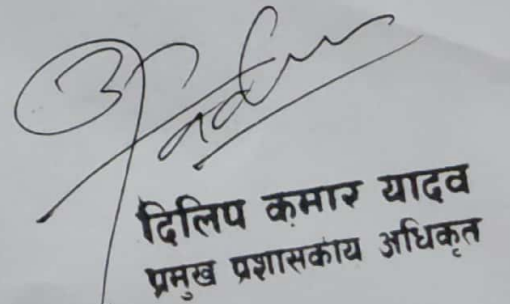 दिलिप कुमार यादव
प्रमुख प्रशासकीय अधिकृत